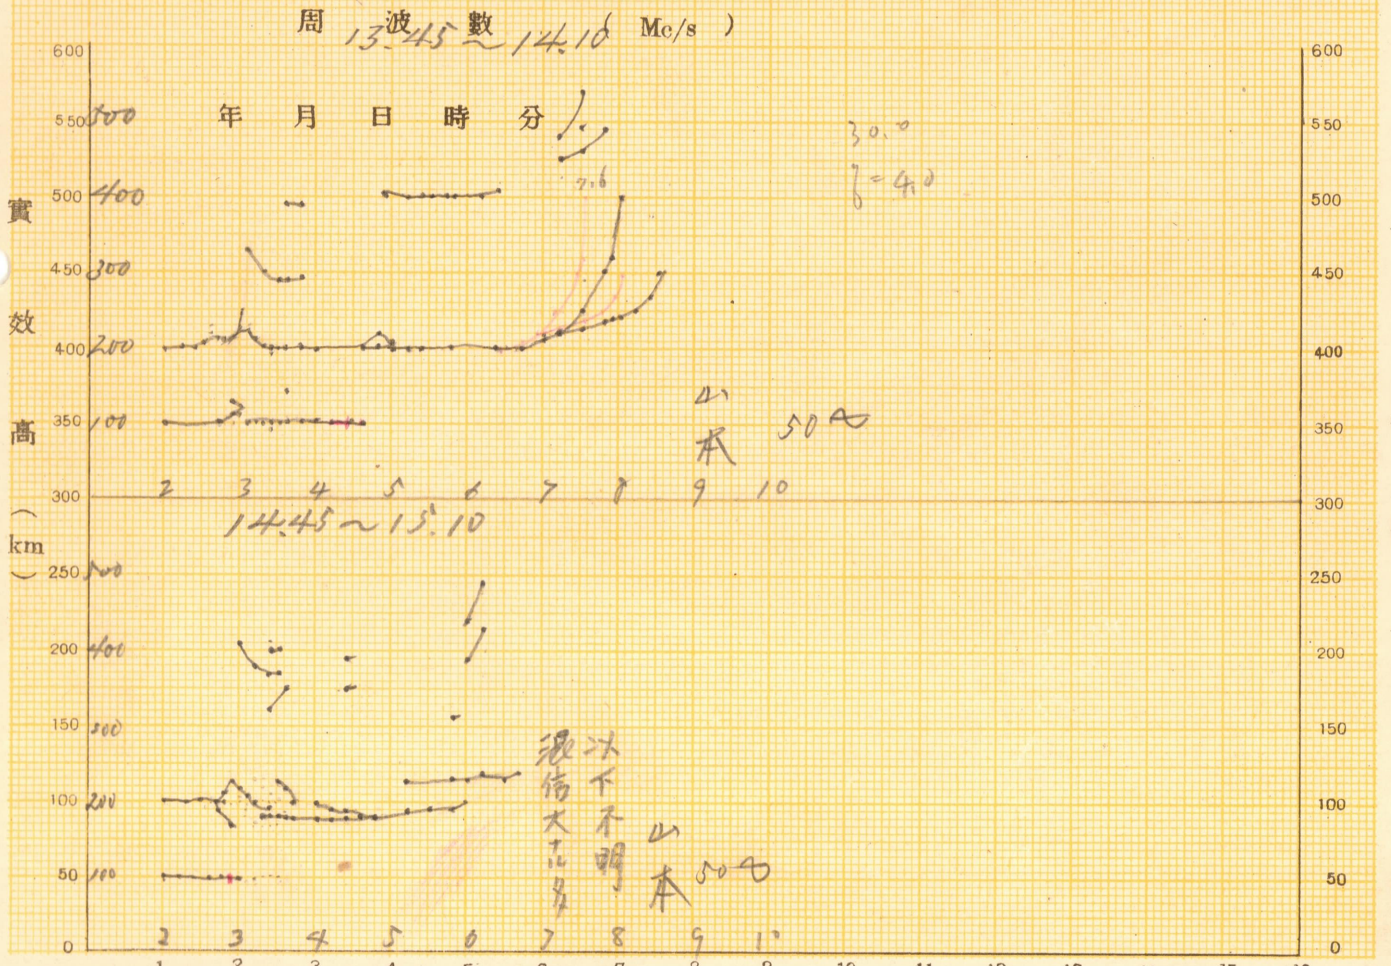 周波數 ( Mc/s )
13.45～14.10
年 月 日 時 分
實效高(km)
600
550
500
450
400
350
300
250
200
150
100
50
0
500
400
300
200
100
7.6
30.0
山本 50～
2 3 4 5 6 7 8 9 10
14.45～15.10
500
400
300
200
100
以下不明
混信大ナル多
山本 50～
2 3 4 5 6 7 8 9
600
550
500
450
400
350
300
250
200
150
100
50
0